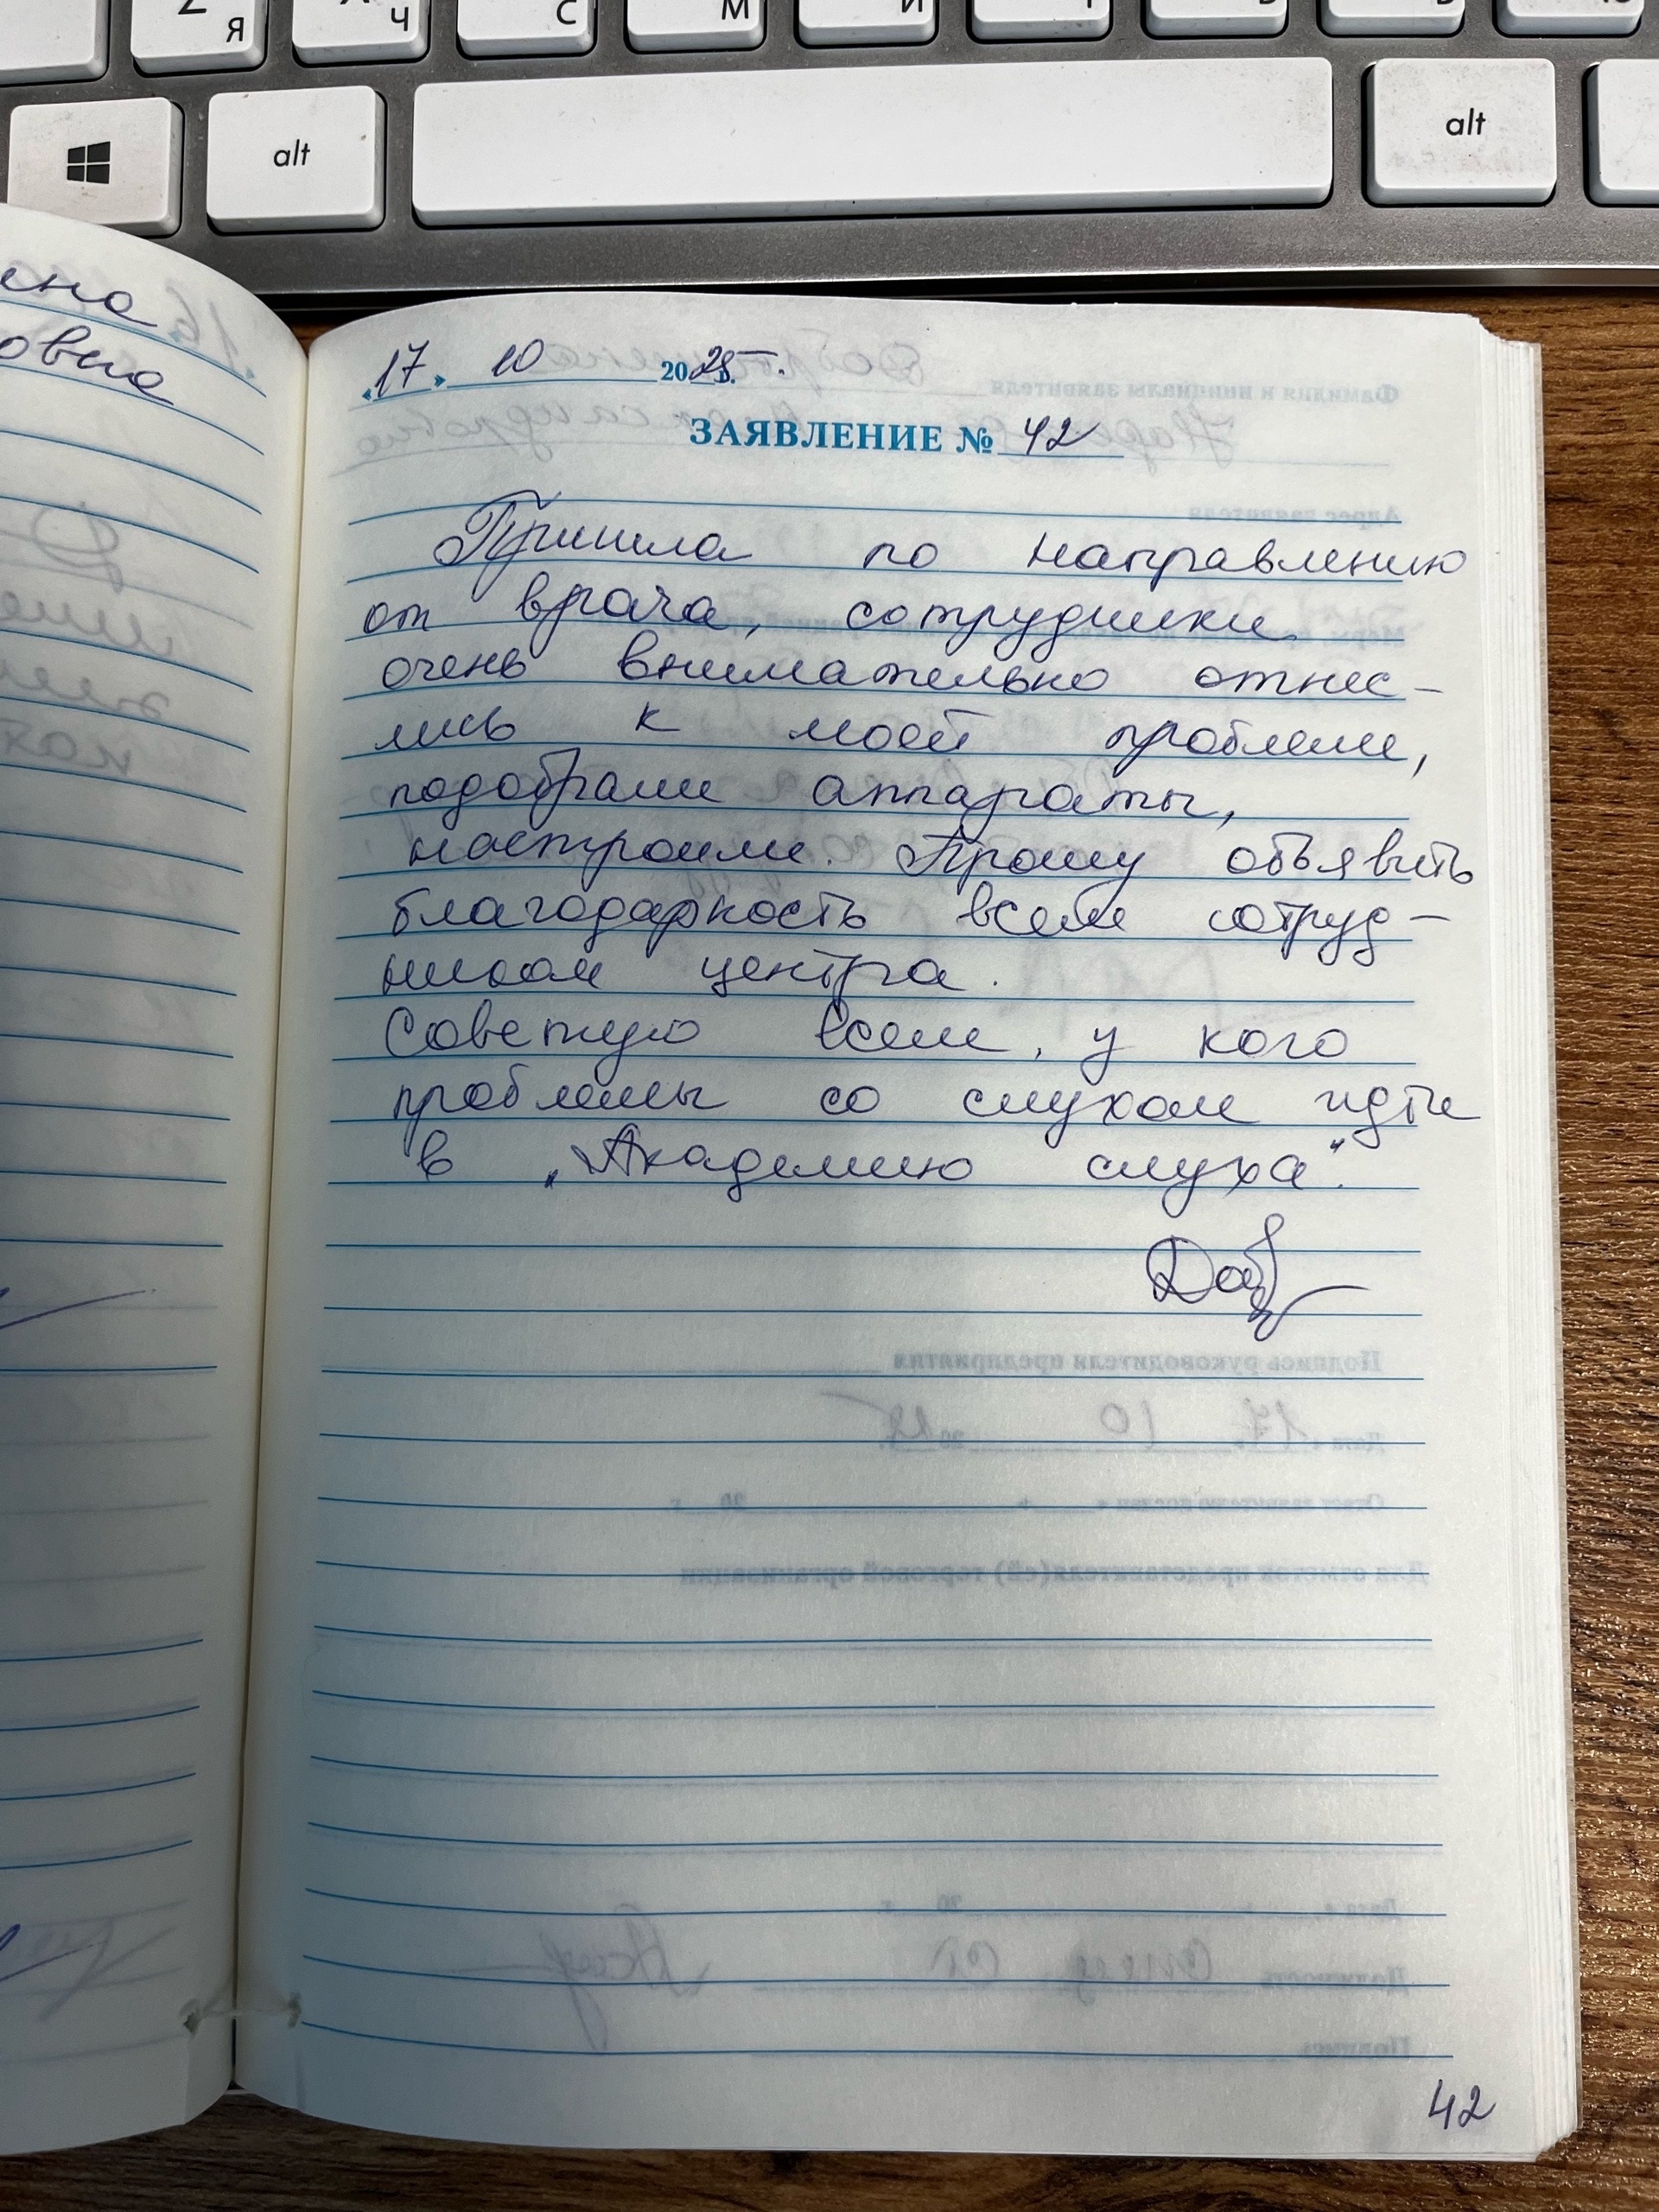 Я Ч С М И
alt alt
ена
овна
«17» 10 2025 г.
ЗАЯВЛЕНИЕ № 42
Пришла по направлению
от врача, сотрудники
очень внимательно отнес-
лись к моей проблеме,
подобрали аппараты,
настроили. Прошу объявить
благодарность всем сотруд-
никам центра.
Советую всем, у кого
проблемы со слухом идти
в „Академию слуха".
42